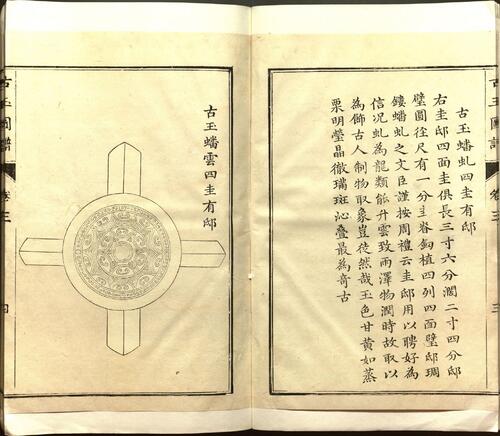 古玉圖譜
卷三
三
古玉蟠虬四圭有邸
右圭邸四面圭俱長三寸六分濶二寸四分邸
璧圓徑尺有一分圭脊鉤植四列四面璧邸琱
鏤蟠虬之文臣謹按周禮云圭邸用以聘好為
信况虬為龍類能升雲致雨澤物潤時故取以
為飾古人制物取象豈徒然哉玉色甘黃如蒸
栗明瑩晶徹璊斑沁疊最為奇古
古玉蟠雲四圭有邸
古玉圖譜
卷三
四